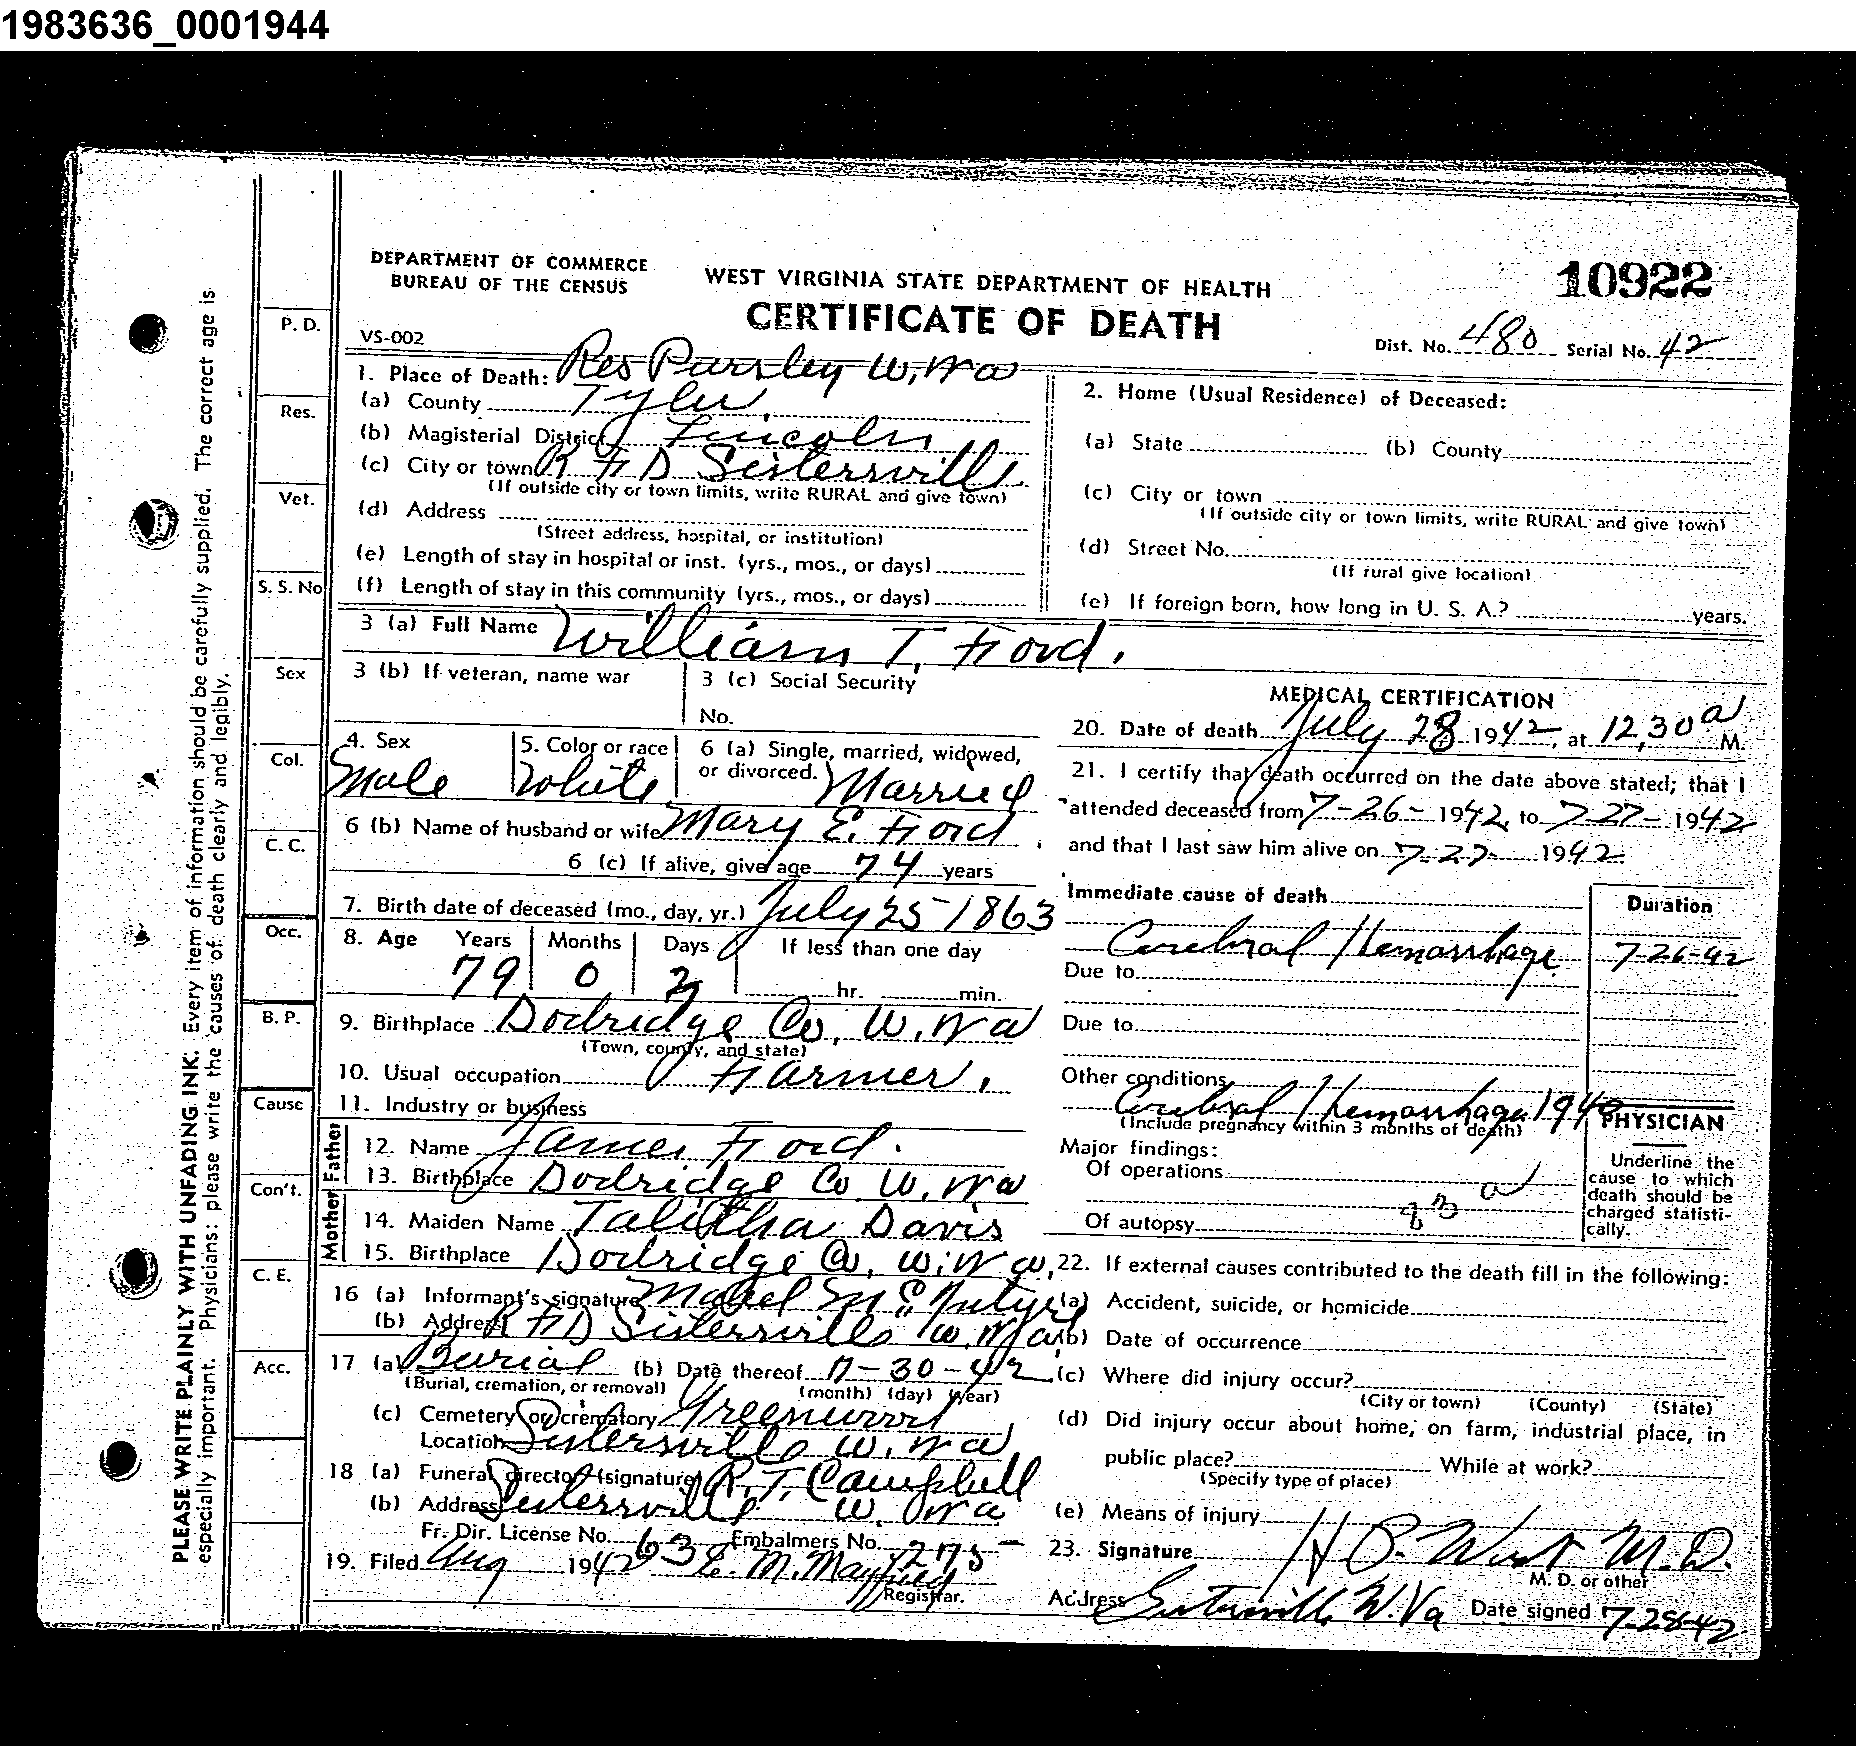 1983636_0001944
DEPARTMENT OF COMMERCE
BUREAU OF THE CENSUS
WEST VIRGINIA STATE DEPARTMENT OF HEALTH
CERTIFICATE OF DEATH
10922
VS-002
Dist. No. 480 Serial No. 42
1. Place of Death: Res Pursley W. Va
(a) County Tyler.
(b) Magisterial District Lincoln
(c) City or town R F D Sistersville
(If outside city or town limits, write RURAL and give town)
(d) Address
(Street address, hospital, or institution)
(e) Length of stay in hospital or inst. (yrs., mos., or days)
(f) Length of stay in this community (yrs., mos., or days)
2. Home (Usual Residence) of Deceased:
(a) State (b) County
(c) City or town
(If outside city or town limits, write RURAL and give town)
(d) Street No.
(If rural give location)
(e) If foreign born, how long in U. S. A.? years.
3 (a) Full Name William T. Ford.
3 (b) If veteran, name war
3 (c) Social Security
No.
4. Sex
Male
5. Color or race
White
6 (a) Single, married, widowed,
or divorced. Married
6 (b) Name of husband or wife Mary E. Ford.
6 (c) If alive, give age 74 years
7. Birth date of deceased (mo., day, yr.) July 25 1863
8. Age Years Months Days If less than one day
79 0 hr. min.
9. Birthplace Dodridge Co. W. Va
(Town, county, and state)
10. Usual occupation Farmer.
11. Industry or business
Father
12. Name James Ford.
13. Birthplace Dodridge Co W. Va
Mother
14. Maiden Name Talitha Davis
15. Birthplace Dodridge Co. W. Va.
16 (a) Informant's signature Mabel
(b) Address R F D Sistersville W. Va
17 (a) Burial (b) Date thereof 7-30-42
(Burial, cremation, or removal) (month) (day) (year)
(c) Cemetery or crematory Greenwood
Location Sistersville W. Va
18 (a) Funeral director (signature) R. T. Campbell
(b) Address Sistersville W. Va
Fr. Dir. License No. 63 Embalmers No. 1275
19. Filed Aug 1942 E. M. Mayfield
Registrar.
MEDICAL CERTIFICATION
20. Date of death July 28 1942, at 12,30 a M.
21. I certify that death occurred on the date above stated; that I
attended deceased from 7-26- 1942, to 7-27- 1942
and that I last saw him alive on 7-27 1942
Immediate cause of death
Duration
Cerebral Hemorrhage 7-26-42
Due to
Due to
Other conditions
Cerebral Hemorrhage 1940
(Include pregnancy within 3 months of death)
Major findings:
Of operations
83 a
Of autopsy
PHYSICIAN
Underline the
cause to which
death should be
charged statisti-
cally.
22. If external causes contributed to the death fill in the following:
(a) Accident, suicide, or homicide
(b) Date of occurrence
(c) Where did injury occur?
(City or town) (County) (State)
(d) Did injury occur about home, on farm, industrial place, in
public place? While at work?
(Specify type of place)
(e) Means of injury
23. Signature West M.D.
M. D. or other
Address Sistersville W. Va Date signed 7-28-42
P. D.
Res.
Vet.
S. S. No
Sex
Col.
C. C.
Occ.
B. P.
Cause
Con't.
C. E.
Acc.
PLEASE WRITE PLAINLY WITH UNFADING INK. Every item of information should be carefully supplied. The correct age is
especially important. Physicians: please write the causes of death clearly and legibly.